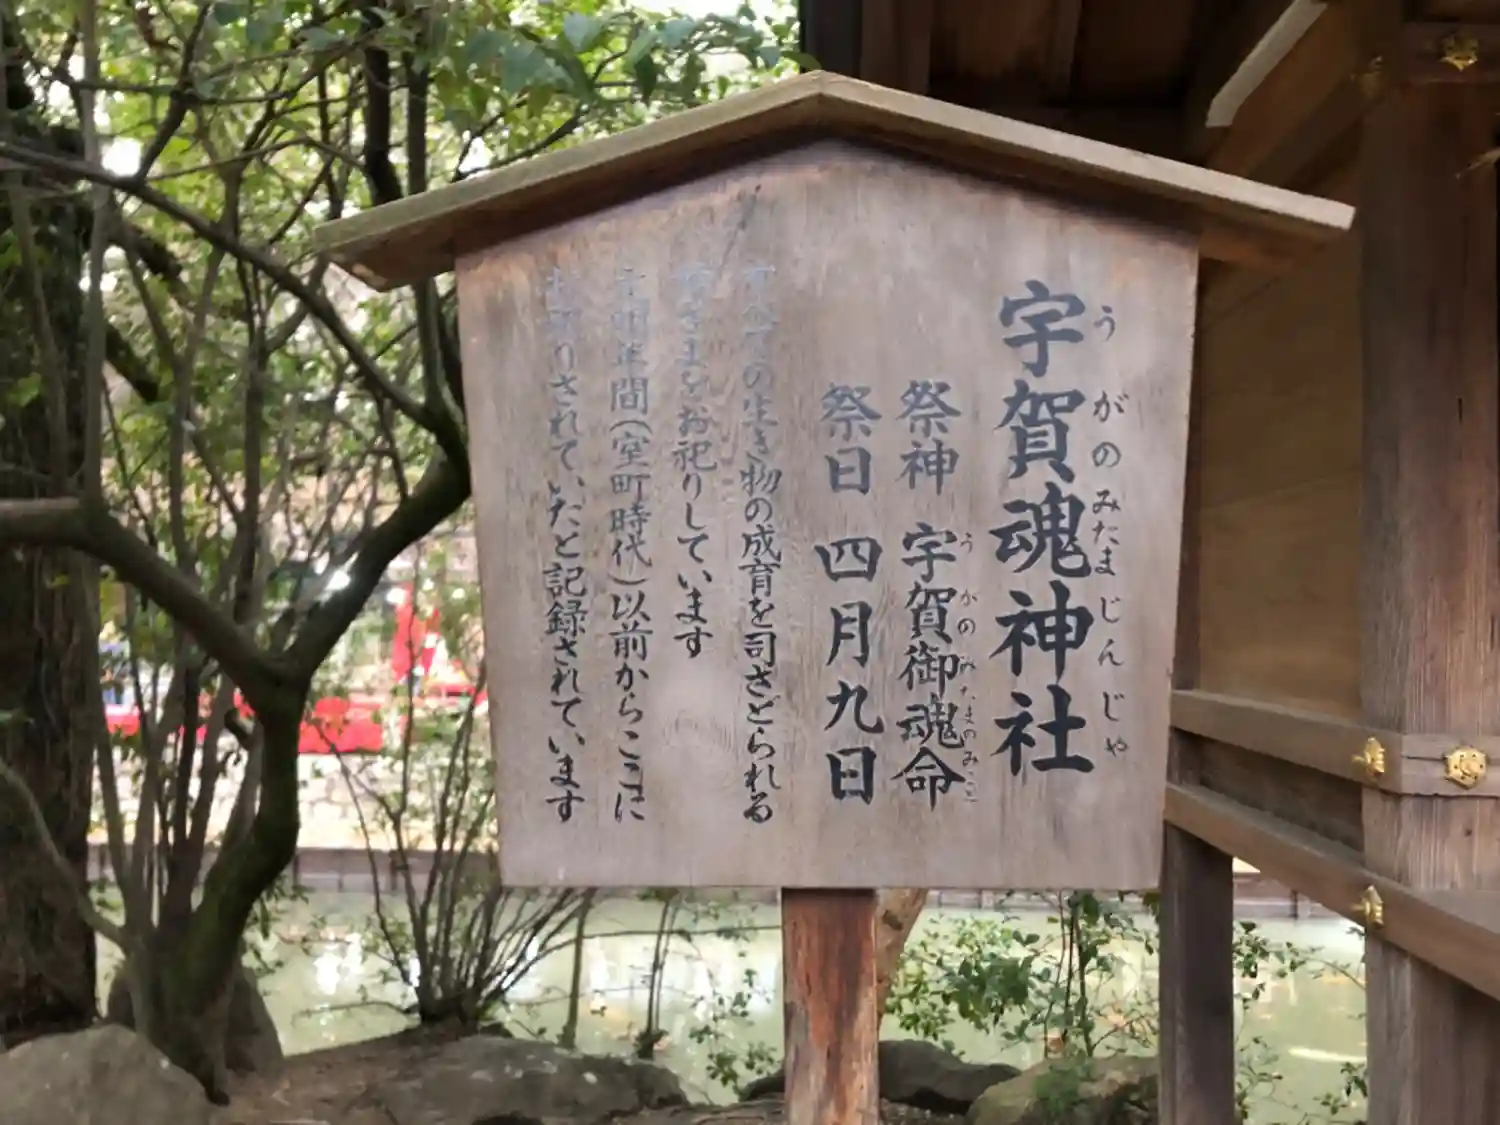 宇賀魂神社
うがのみたまじんじゃ
祭神 宇賀御魂命
うがのみたまのみこと
祭日 四月九日
の生き物の成育を司さどられる
さまをお祀りしています
文明年間(室町時代)以前からここに
お祀りされていたと記録されています